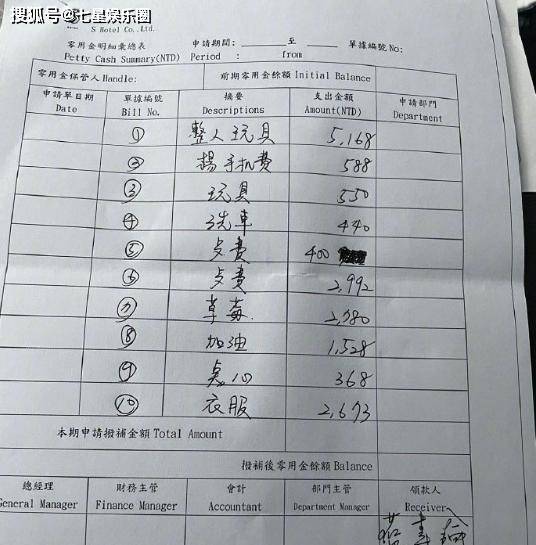 搜狐号@七星娱乐圈
S Hotel Co.,Ltd.
零用金明細彙總表 申請期間: 至 單據編號No:
Petty Cash Summary(NTD) Period : from
零用金保管人Handle: 前期零用金餘額 Initial Balance
申請單日期 單據編號 摘要 支出金額 申請部門
Date Bill No. Descriptions Amount(NTD) Department
① 整人玩具 5,168
② 楊手机費 588
③ 玩具 550
④ 洗車 440
⑤ 費 400
⑥ 費 2,992
⑦ 草莓
⑧ 加油 1,528
⑨ 點心 368
⑩ 衣服 2,673
本期申請撥補金額 Total Amount
撥補後零用金餘額 Balance
總經理 財務主管 會計 部門主管 領款人
General Manager Finance Manager Accountant Department Manager Receiver